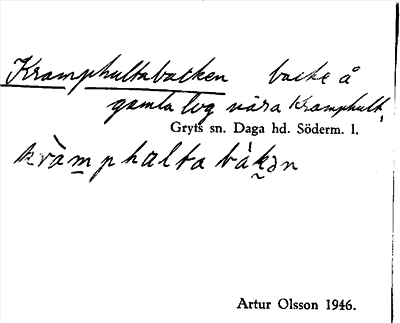 Kramphultabacken backe å
gamla lvg nära Kramphult,
Gryts sn. Daga hd. Söderm. l.
kràmphalta bàkən
Artur Olsson 1946.